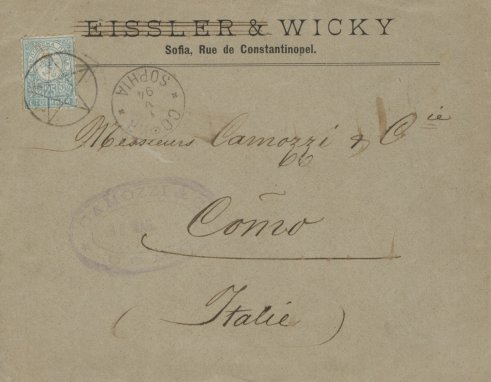 EISSLER & WICKY
Sofia, Rue de Constantinopel.
25
СОФИЯ
SOPHIA
94
Messieurs Camozzi & Cie
CAMOZZI
Como
(Italie)